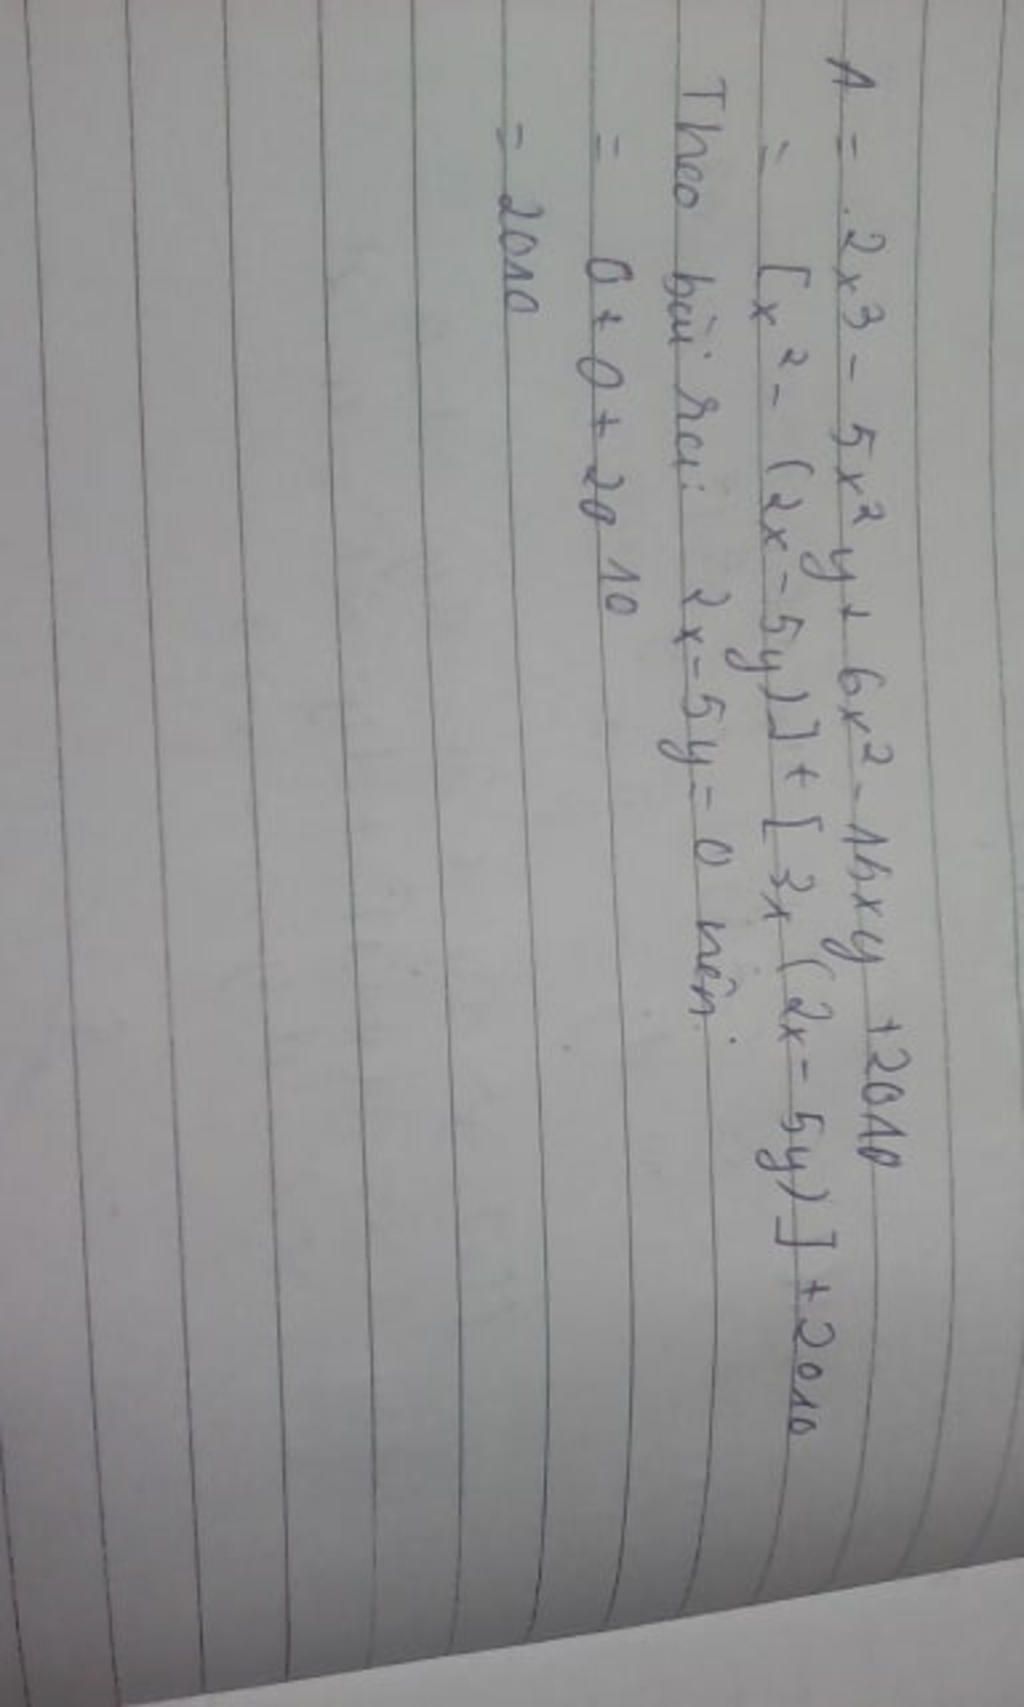 A = 2x³ - 5x²y + 6x² - 15xy + 2010
= [x² - (2x - 5y)] + [3x (2x - 5y)] + 2010
Theo bài ra: 2x - 5y = 0 nên:
= 0 + 0 + 2010
= 2010